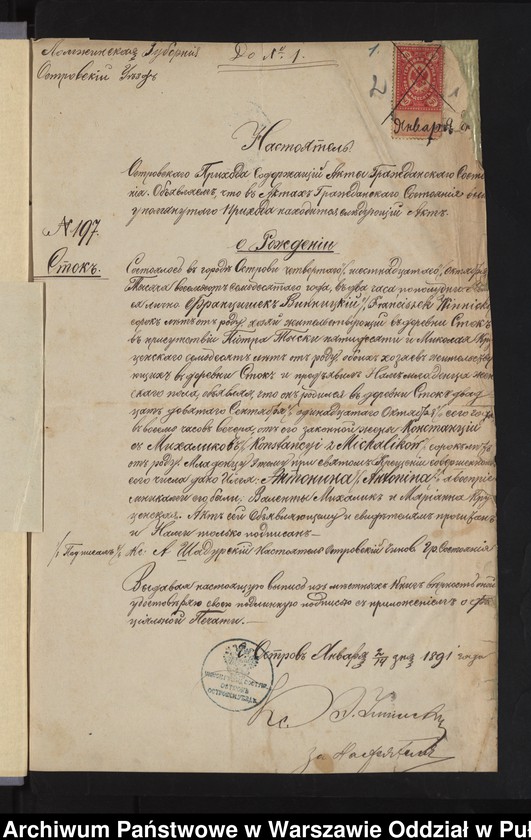 Ломжинская Губернія
Островскій Уѣздъ
До № 1.
1.
2
1
Января
Настоятель
Островскаго Прихода Содержащій Акты Гражданскаго Состо
янія. Объявляемъ, что въ Актахъ Гражданскаго Состоянія
упомянутаго Прихода находится слѣдующій Актъ.
№ 197.
Стокъ.
о Рожденіи
Состоялось въ городѣ Островѣ четвертаго/шестнадцатаго/ Октября
Мѣсяца восемьсотъ семьдесятаго года, въ два часа пополудни
лично Францишекъ Винницкій /Franciszek Winnicki
сорокъ лѣтъ отъ роду, жительствующій въ деревни Стокъ
въ присутствіи Петра пятидесяти и Миколая
семьдесятъ лѣтъ отъ роду, обоихъ хозяевъ жительству
ющихъ въ деревни Стокъ и предъявилъ Намъ младенца жен
скаго пола, объявляя, что онъ родился въ деревни Стокъ двад
цать девятаго Сентября/ одинадцатаго Октября/ сего года
въ восемь часовъ вечера, отъ его законной жены Констанціи
съ Михаликовъ /Konstancyi z Michalików/, сорокъ
отъ роду. Младенцу этому при святомъ Крещеніи совершенномъ
сего числа дано имя Антонина /Antonina/, а воспріе
мниками его были: Валенты Михаликъ и Маріанна
Актъ сей Объявляющему и свидѣтелямъ прочитанъ
и Нами только подписанъ.—
/Подписалъ/ Кс. А. Шадурскій Настоятель Островскій Чинов. Гр. Состоянія
Выдавая настоящую выпись изъ мѣстныхъ книгъ вѣрность
удостовѣряю своею подлинную подписью съ приложеніемъ
Печати.—
Островъ Января 2/14 дня 1891 года
Кс.
за Настоятеля
Archiwum Państwowe w Warszawie Oddział w Pu